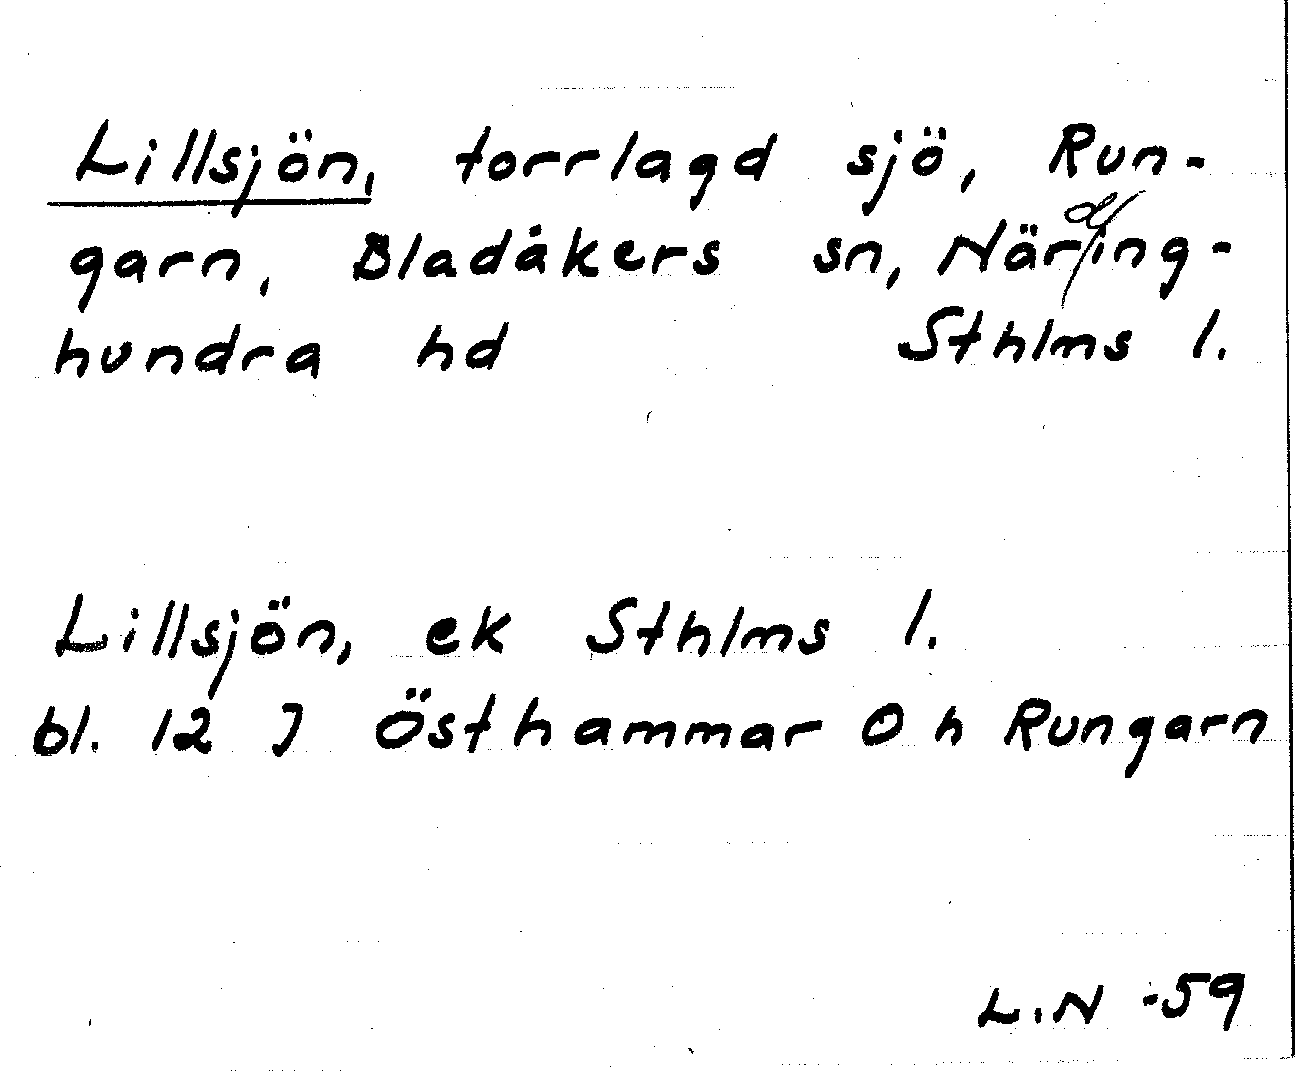 Lillsjön, torrlagd sjö, Run-
garn, Bladåkers sn, Närding-
hundra hd Sthlms l.
Lillsjön, ek Sthlms l.
bl. 12 J Östhammar 0 h Rungarn
L.N -59